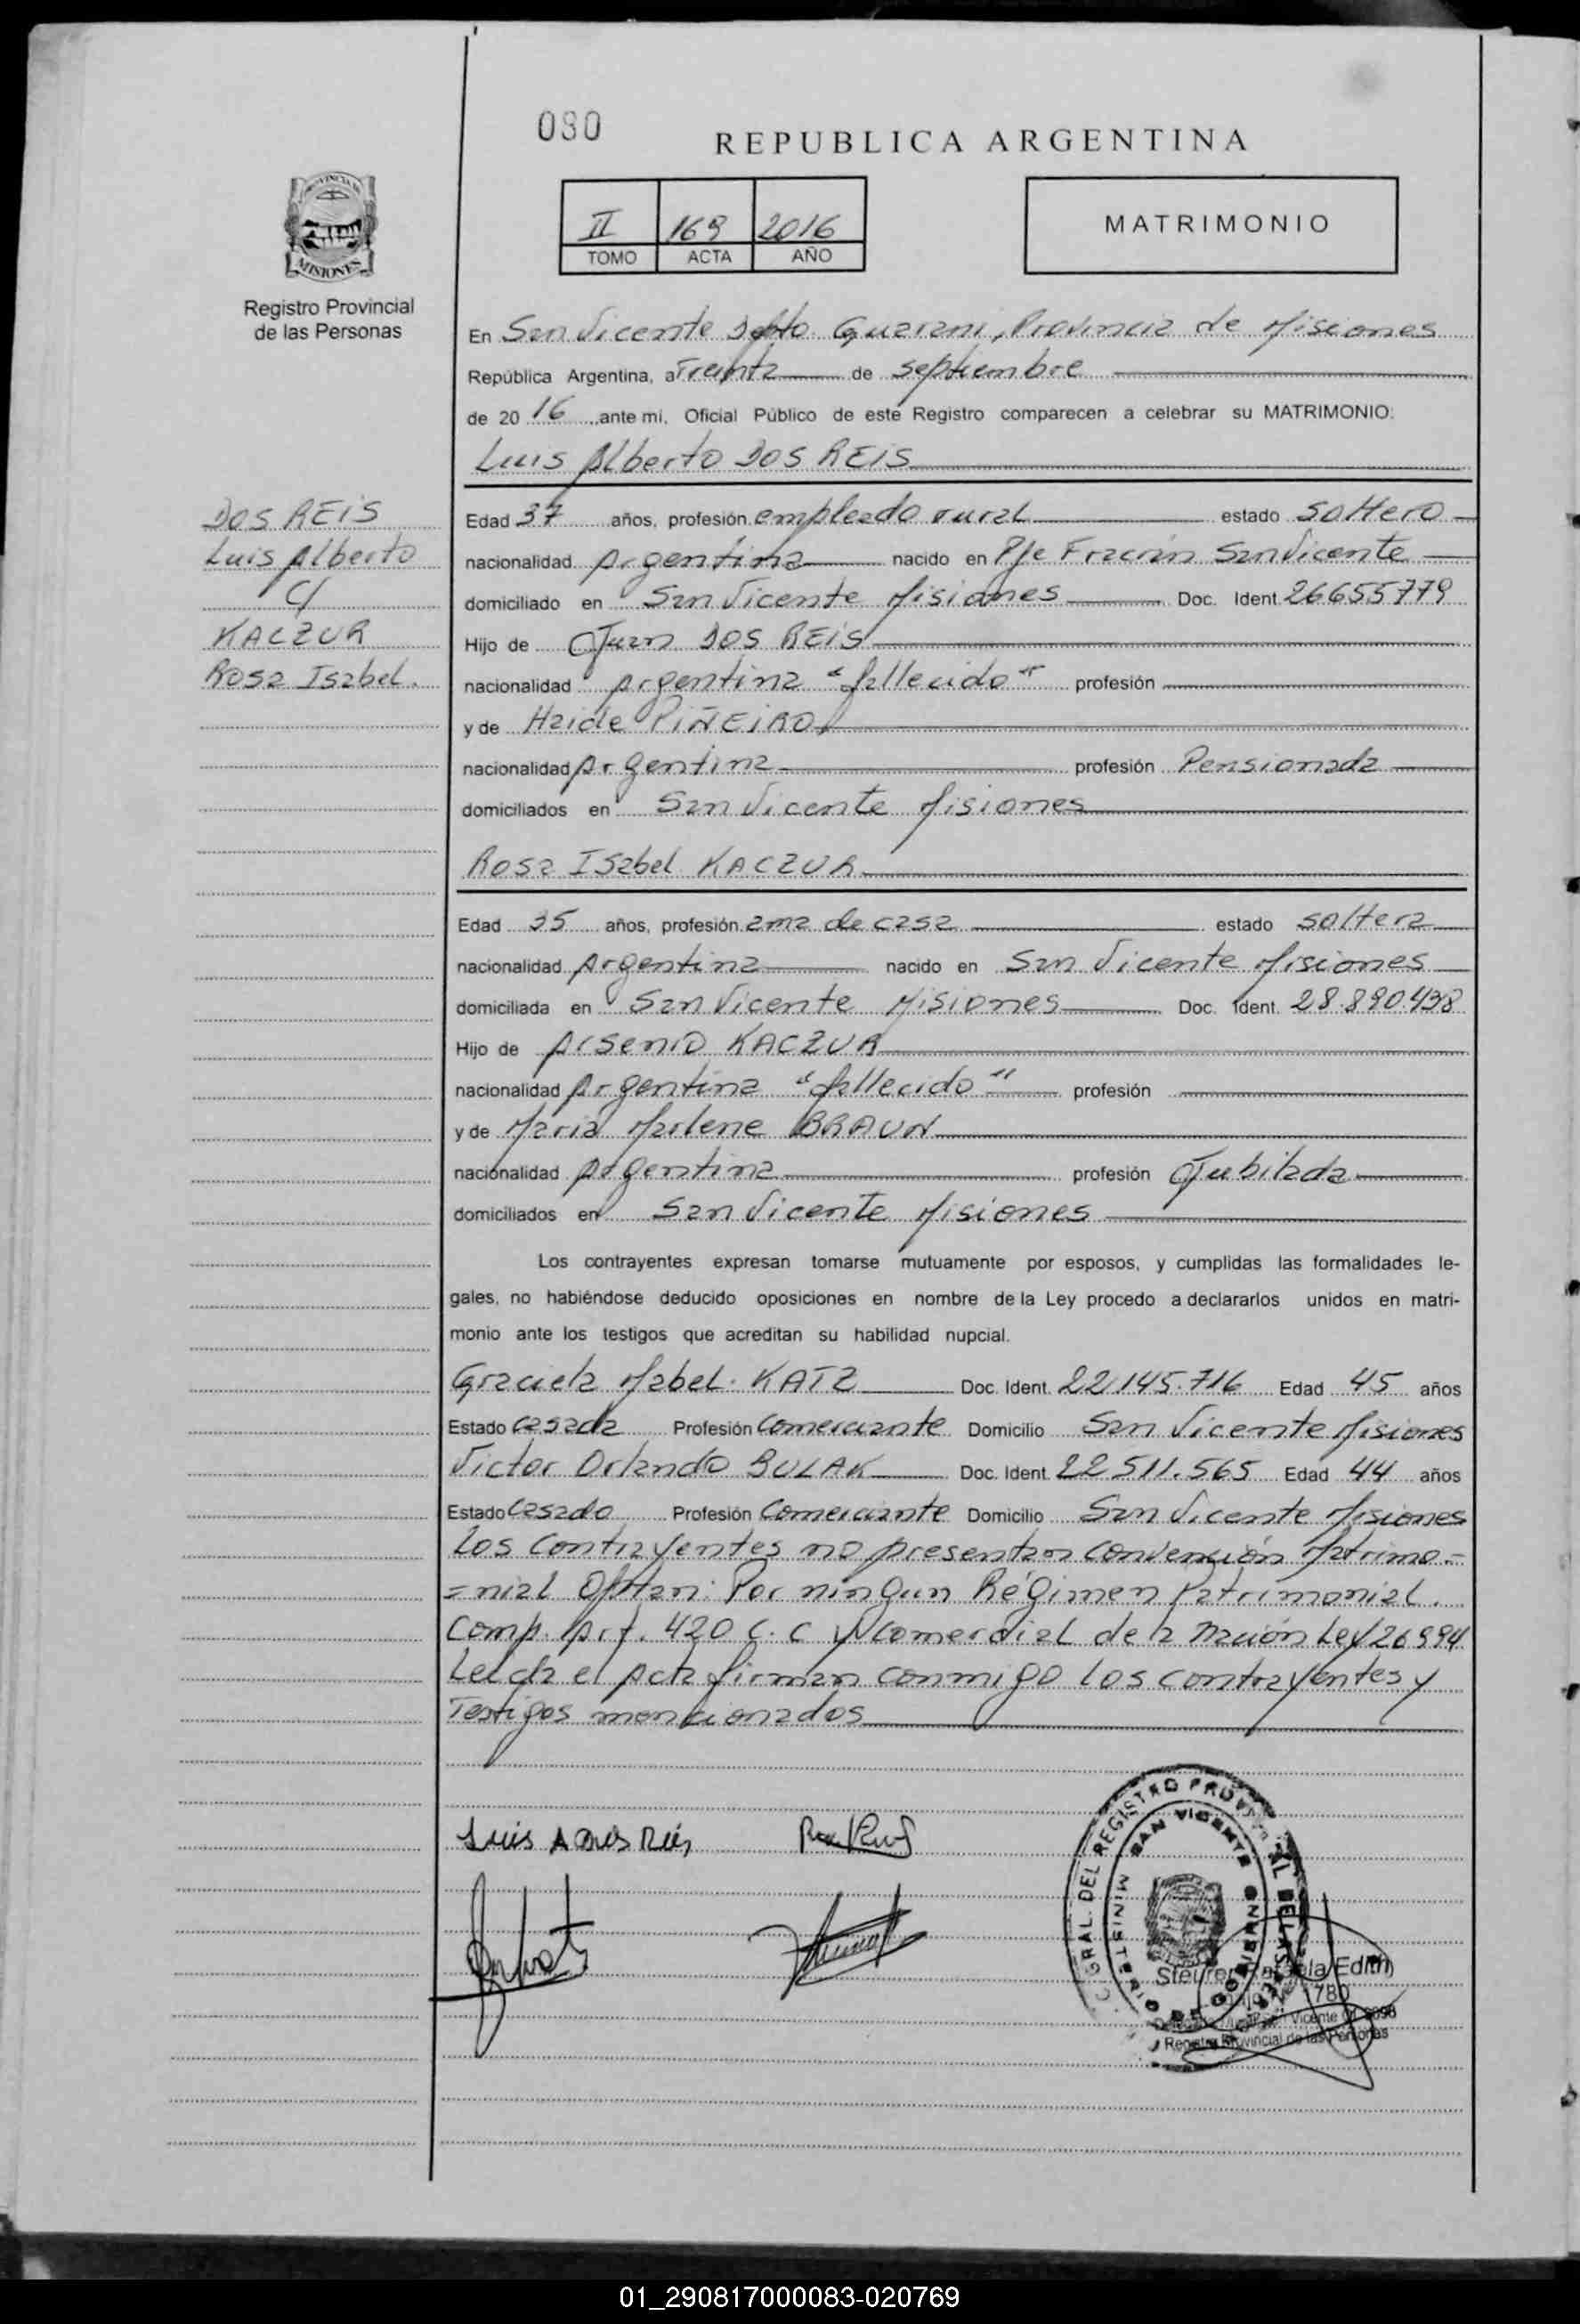 090
REPUBLICA ARGENTINA
II 169 2016
TOMO ACTA AÑO
MATRIMONIO
PROVINCIA DE
MISIONES
Registro Provincial
de las Personas
En San Vicente Depto. Guarani, Provincia de Misiones
República Argentina, a Treinta de septiembre
de 20 16 ante mi, Oficial Público de este Registro comparecen a celebrar su MATRIMONIO:
Luis Alberto DOS REIS
DOS REIS
Luis Alberto
C/
KACZUR
Rosa Isabel.
Edad 37 años, profesión empleado rural estado soltero
nacionalidad Argentina nacido en Pje Fracrán San Vicente
domiciliado en San Vicente Misiones Doc. Ident. 26655779
Hijo de Juan DOS REIS
nacionalidad Argentina "fallecido" profesión
y de Haide PIÑEIRO
nacionalidad Argentina profesión Pensionada
domiciliados en San Vicente Misiones
Rosa Isabel KACZUR
Edad 35 años, profesión ama de casa estado soltera
nacionalidad Argentina nacido en San Vicente Misiones
domiciliada en San Vicente Misiones Doc. Ident. 28.890.438
Hijo de Arsenio KACZUR
nacionalidad Argentina "fallecido" profesión
y de Maria Marlene BRAUN
nacionalidad Argentina profesión Jubilada
domiciliados en San Vicente Misiones
Los contrayentes expresan tomarse mutuamente por esposos, y cumplidas las formalidades le-
gales, no habiéndose deducido oposiciones en nombre de la Ley procedo a declararlos unidos en matri-
monio ante los testigos que acreditan su habilidad nupcial.
Graciela Mabel KATZ Doc. Ident. 22.145.716 Edad 45 años
Estado casada Profesión Comerciante Domicilio San Vicente Misiones
Victor Orlando BULAK Doc. Ident. 22511.565 Edad 44 años
Estado Casado Profesión Comerciante Domicilio San Vicente Misiones
Los Contrayentes no presentan Convención Matrimo=
=nial Optan: Por ningun Régimen Patrimonial.
Comp. Art. 420 C. C y Comercial de la Nación Ley 26994
Leida el Acta firman conmigo los contrayentes y
Testigos mencionados
Luis A Dos Reis
GRAL. DEL REGISTRO PROV
SAN VICENTE
MINISTERIO DE GOBIERNO
Edith
Registro Provincial de las Personas
01_290817000083-020769